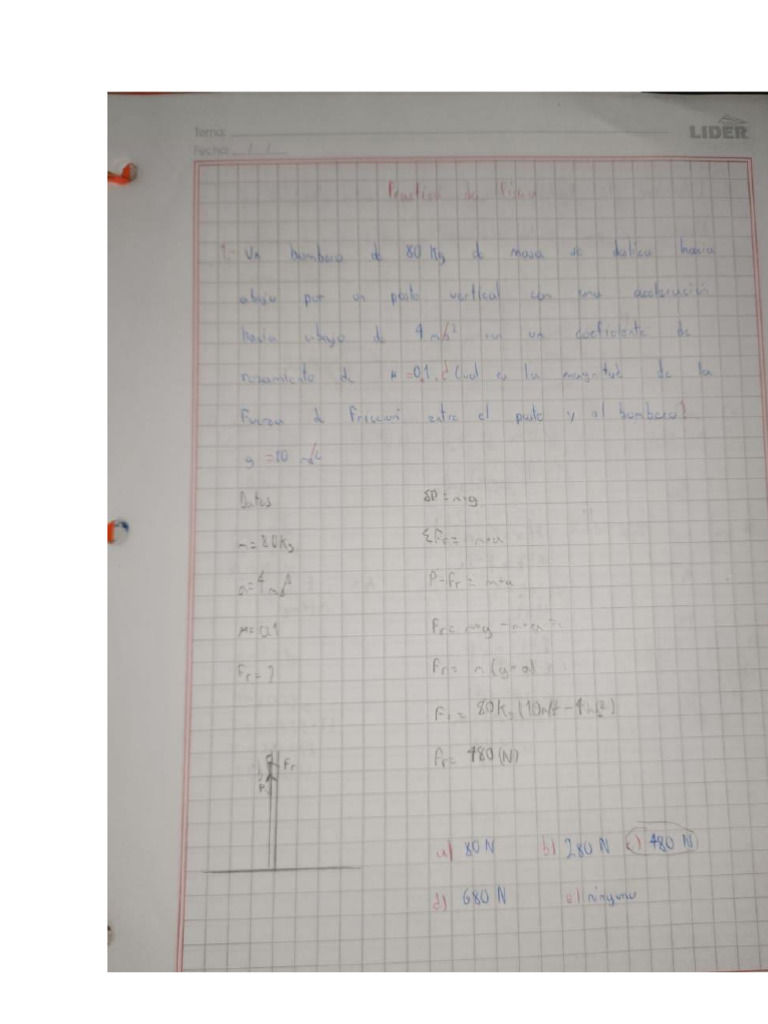 Tema:
LIDER
Fecha: / /
Practica de Física
1.- Un bombero de 80 Kg de masa se desliza hacia
abajo por un poste vertical con una aceleración
hacia abajo de 4 m/s² con un coeficiente de
rozamiento de μ =0,1. ¿Cual es la magnitud de la
Fuerza de Friccion entre el poste y el bombero?
g =10 m/s²
Datos
m= 80Kg
a= 4 m/s²
μ= 0,1
Fr= ?
ΣP= m*g
ΣFr= m*a
P-Fr= m*a
Fr= m*g - m*a
Fr= m (g-a)
Fr= 80Kg (10m/s² - 4m/s²)
Fr= 480 (N)
Fr
P
a) 80 N b) 280 N c) 480 N
d) 680 N e) ninguno